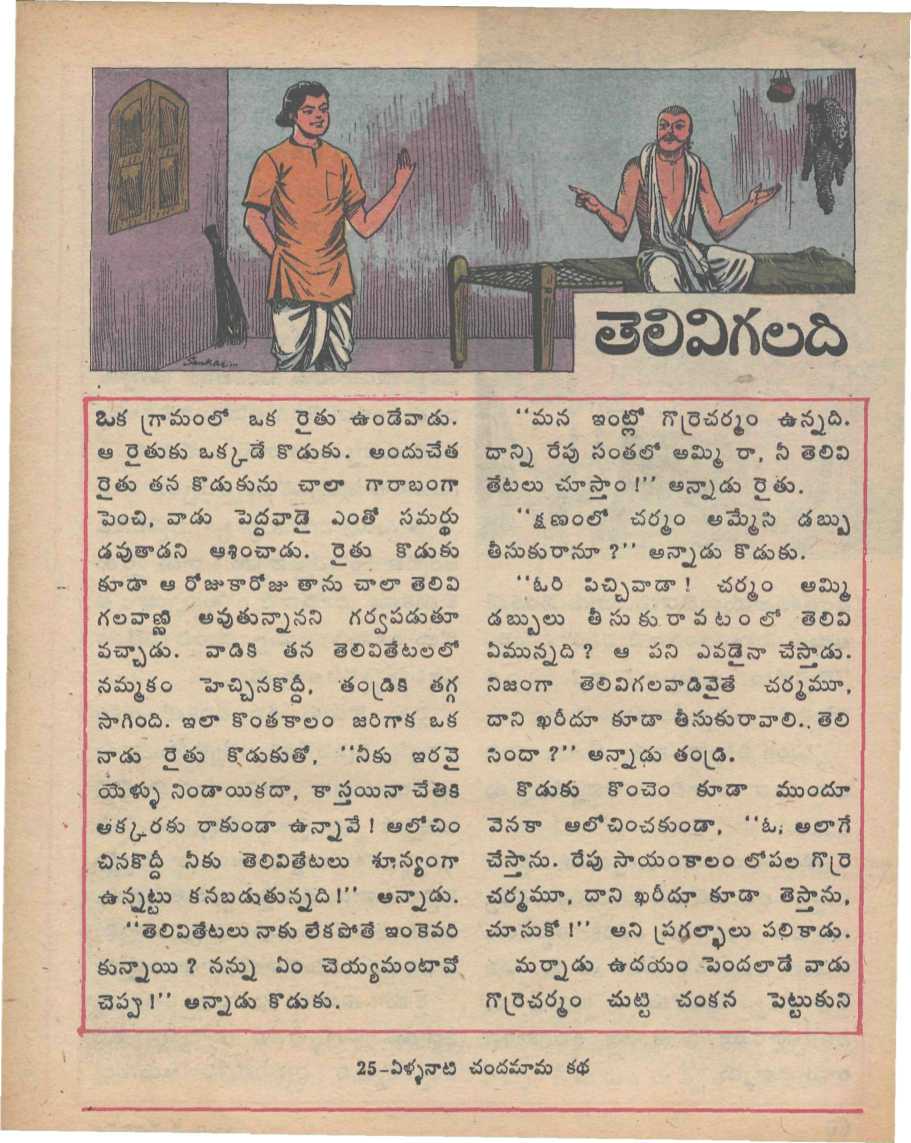 తెలివిగలది
ఒక గ్రామంలో ఒక రైతు ఉండేవాడు.
ఆ రైతుకు ఒక్కడే కొడుకు. అందుచేత
రైతు తన కొడుకును చాలా గారాబంగా
పెంచి, వాడు పెద్దవాడై ఎంతో సమర్థు
డవుతాడని ఆశించాడు. రైతు కొడుకు
కూడా ఆ రోజుకారోజు తాను చాలా తెలివి
గలవాణ్ణి అవుతున్నానని గర్వపడుతూ
వచ్చాడు. వాడికి తన తెలివితేటలలో
నమ్మకం హెచ్చినకొద్దీ, తండ్రికి తగ్గ
సాగింది. ఇలా కొంతకాలం జరిగాక ఒక
నాడు రైతు కొడుకుతో, ‘‘నీకు ఇరవై
యేళ్ళు నిండాయికదా, కాస్తయినా చేతికి
అక్కరకు రాకుండా ఉన్నావే! ఆలోచిం
చినకొద్దీ నీకు తెలివితేటలు శూన్యంగా
ఉన్నట్టు కనబడుతున్నది!’’ అన్నాడు.
‘‘తెలివితేటలు నాకు లేకపోతే ఇంకెవరి
కున్నాయి? నన్ను ఏం చెయ్యమంటావో
చెప్పు!’’ అన్నాడు కొడుకు.
‘‘మన ఇంట్లో గొర్రెచర్మం ఉన్నది.
దాన్ని రేపు సంతలో అమ్మి రా, నీ తెలివి
తేటలు చూస్తాం!’’ అన్నాడు రైతు.
‘‘క్షణంలో చర్మం అమ్మేసి డబ్బు
తీసుకురానూ?’’ అన్నాడు కొడుకు.
‘‘ఓరి పిచ్చివాడా! చర్మం అమ్మి
డబ్బులు తీసుకురావటంలో తెలివి
ఏమున్నది? ఆ పని ఎవడైనా చేస్తాడు.
నిజంగా తెలివిగలవాడివైతే చర్మమూ,
దాని ఖరీదూ కూడా తీసుకురావాలి.. తెలి
సిందా?’’ అన్నాడు తండ్రి.
కొడుకు కొంచెం కూడా ముందూ
వెనకా ఆలోచించకుండా, ‘‘ఓ, అలాగే
చేస్తాను. రేపు సాయంకాలం లోపల గొర్రె
చర్మమూ, దాని ఖరీదూ కూడా తెస్తాను,
చూసుకో!’’ అని ప్రగల్భాలు పలికాడు.
మర్నాడు ఉదయం పెందలాడే వాడు
గొర్రెచర్మం చుట్టి చంకన పెట్టుకుని
25-ఏళ్ళనాటి చందమామ కథ